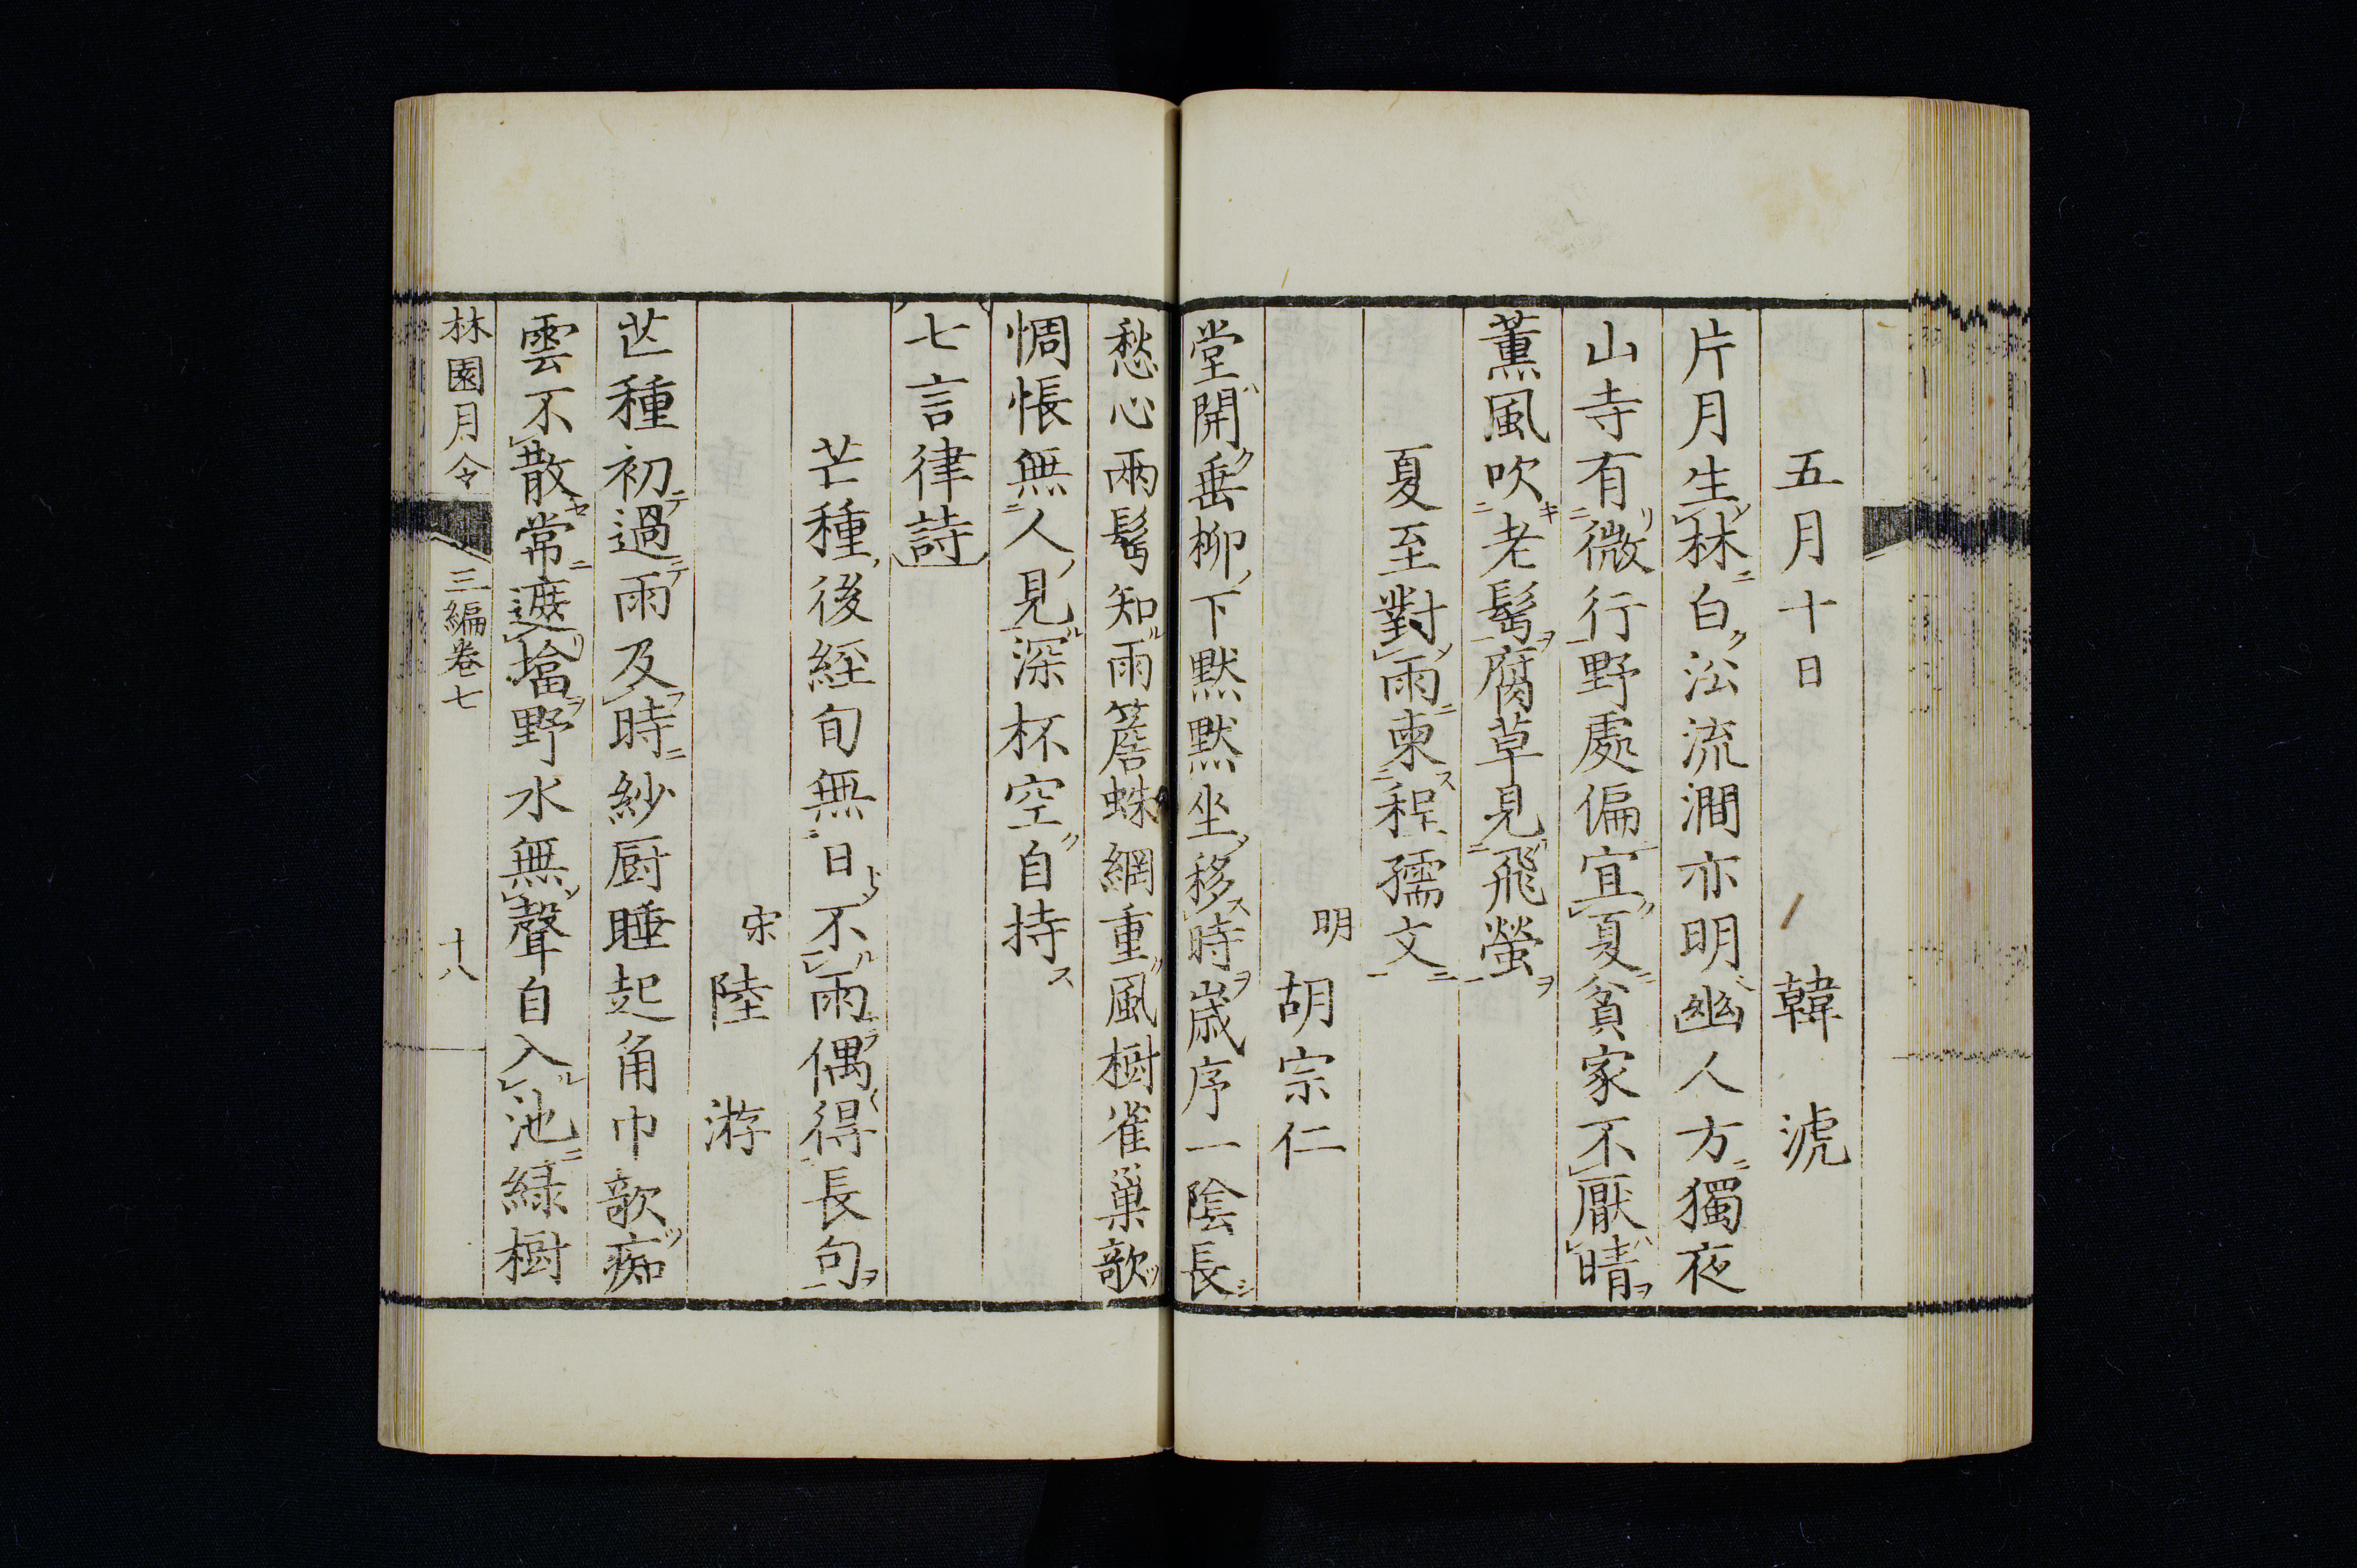 五月十日 韓淲
片月生林白沿流澗亦明幽人方獨夜
山寺有微行野處偏宜夏貧家不厭晴
薫風吹老鬂腐草見飛螢
夏至對雨柬程孺文
明 胡宗仁
堂開垂柳下黙黙坐移時歳序一陰長
愁心兩鬂知雨簷蛛網重風樹雀巢欹
惆悵無人見深杯空自持
七言律詩
芒種後経旬無日不雨偶得長句
宋 陸游
芒種初過雨及時紗厨睡起角巾欹痴
雲不散常遮墖野水無聲自入池緑樹
林園月令 三編巻七 十八